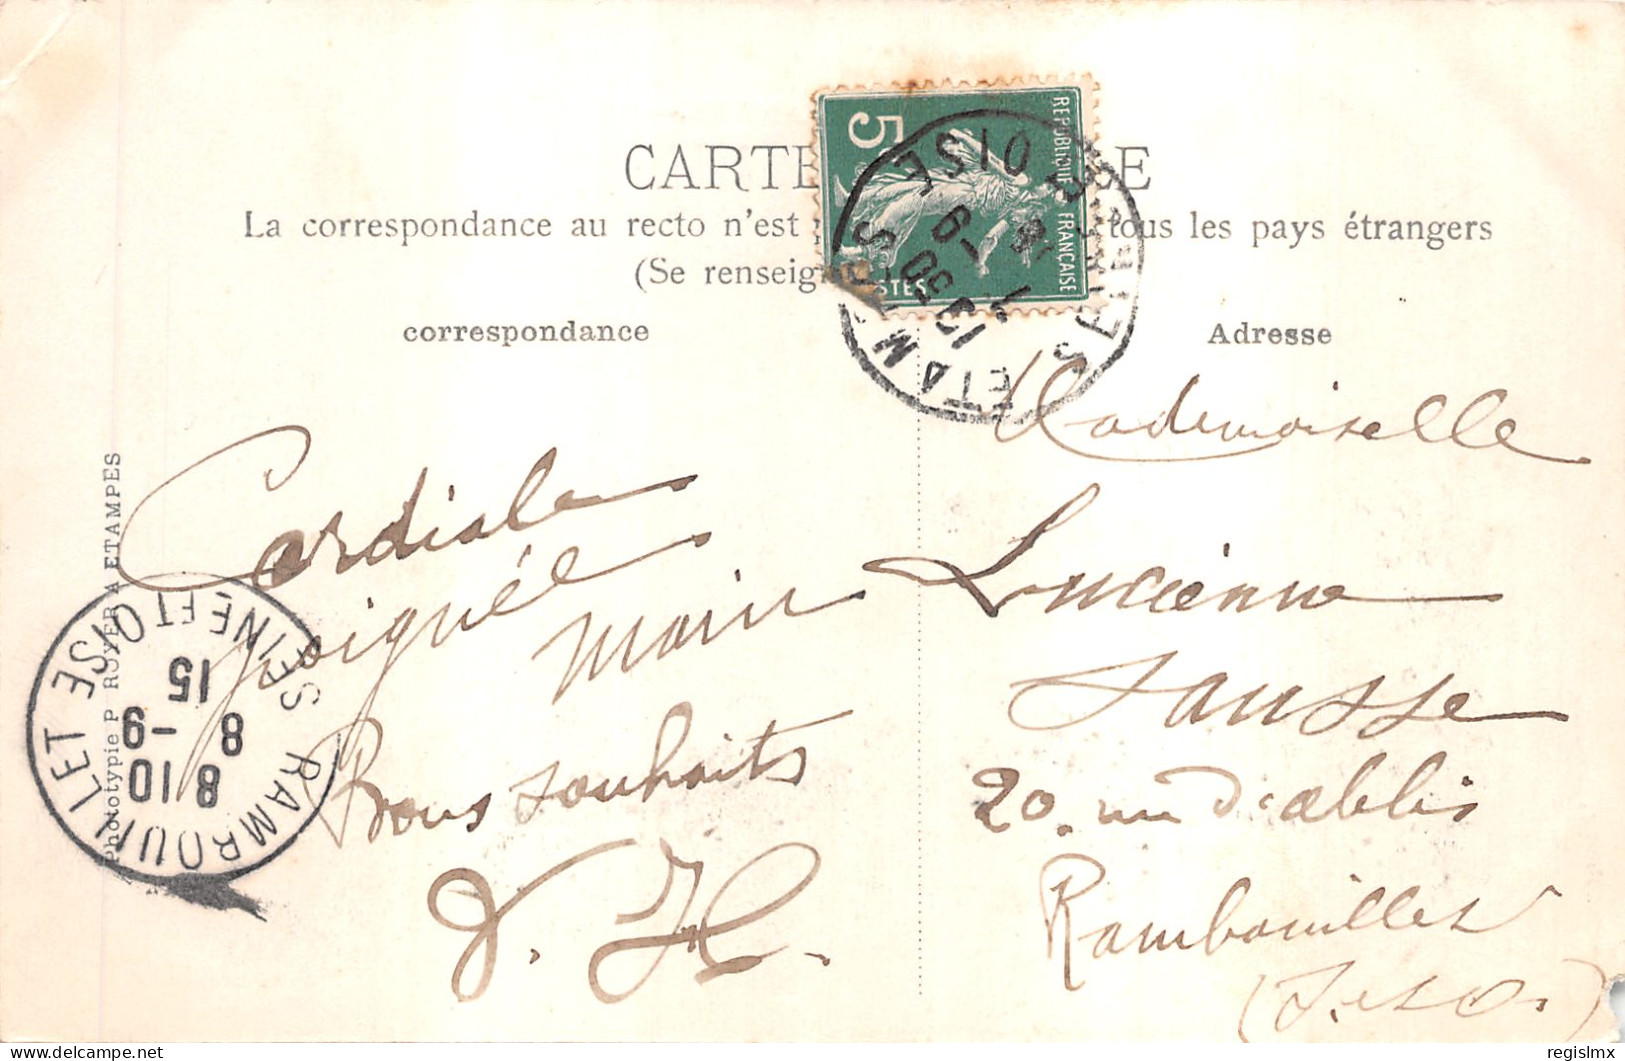 CARTE
La correspondance au recto n'est tous les pays étrangers
(Se renseign
correspondance
Adresse
5
REPUBLIQUE FRANÇAISE
ETAMPES
SEINE ET OISE
13 50
7 - 9
Mademoiselle
Lucienne
Sausse
20. rue d'ablis
Rambouillet
(S. et O.)
Cordiale
poignée
main
Bons souhaits
J. H.
RAMBOUILLET
SEINE ET OISE
8 10
8 - 9
15
Phototypie P ROYER A ETAMPES
regislmx